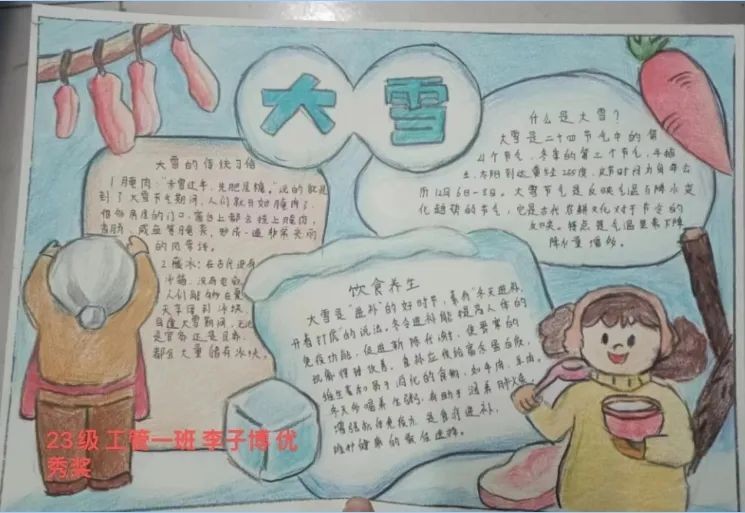 大雪
什么是大雪?
大雪是二十四节气中的第
21个节气,冬季的第三个节气,斗指
壬,太阳到达黄经255度,交节时间为每年公
历12月6日-8日。大雪节气是反映气温与降水变
化趋势的节气,它是古代农耕文化对于节令的
反映。特点是气温显著下降
降水量增多。
大雪的传统习俗
1.腌肉:"未曾过年,先肥屋檐。"说的就是
到了大雪节气期间,人们就开始腌肉了
的门口、窗台上都会挂上腌肉、
香肠、咸鱼等腌菜,
的风景线。
2.藏冰:在古代没有
冰箱,没有电
人们能够在夏
天享受到冰块,
大雪期间,无论
是官家还是民家,
都会大量储存冰块。
饮食养生
大雪是"进补"的好时节,素有"冬天进补,
开春打虎"的说法。冬令进补能提高人体的
免疫功能,促进新陈代谢,使畏寒的
现象得到改善。食补应供给富含蛋白质、
维生素和易于消化的食物,如牛肉、羊肉。
冬天多喝养生粥,有助于滋养
增强抗病免疫力,是食疗进补,
维护健康的最佳选择。
23级工管一班李子博优
秀奖